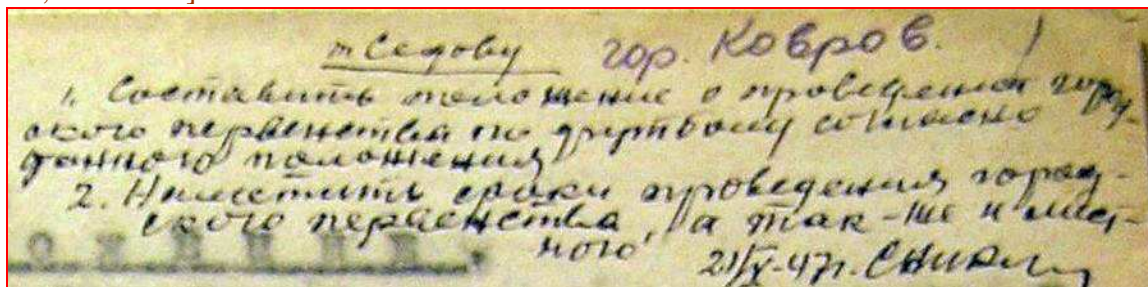 т Седову гор. Ковров.
1. Составить положение о проведении город-
ского первенства по футболу согласно
данного положения
2. Наметить сроки проведения город-
ского первенства, а так-же и мест-
ного
21/V-47г.